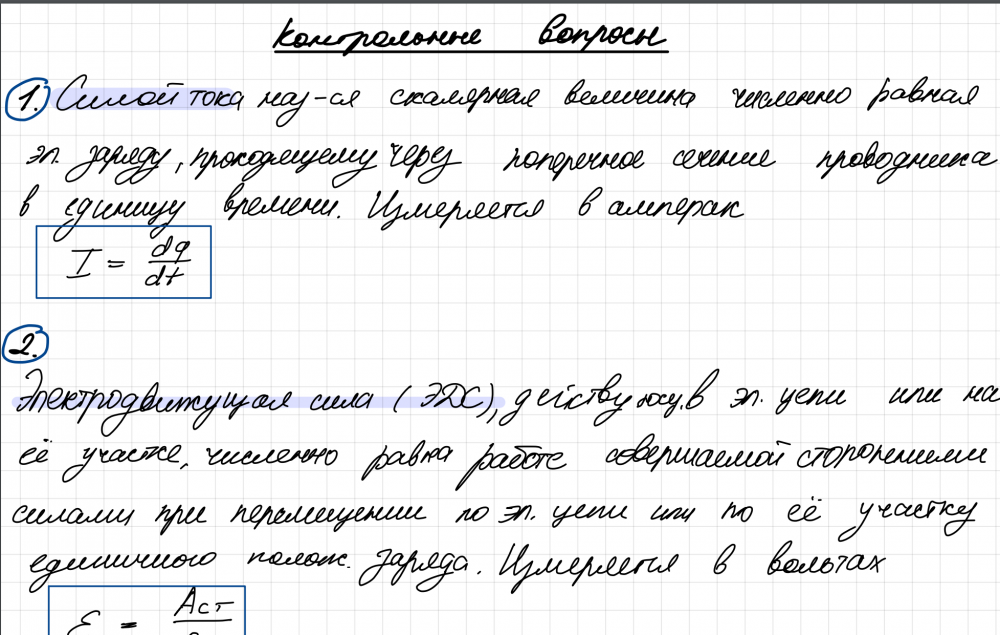 Контрольные вопросы
1. Силой тока наз-ся скалярная величина численно равная
эл. заряду, проходящему через поперечное сечение проводника
в единицу времени. Измеряется в амперах
I = dq/dt
2.
Электродвижущая сила (ЭДС), действующ. в эл. цепи или на
её участке, численно равна работе совершаемой сторонними
силами при перемещении по эл. цепи или по её участку
единичного полож. заряда. Измеряется в вольтах
ε = Aст